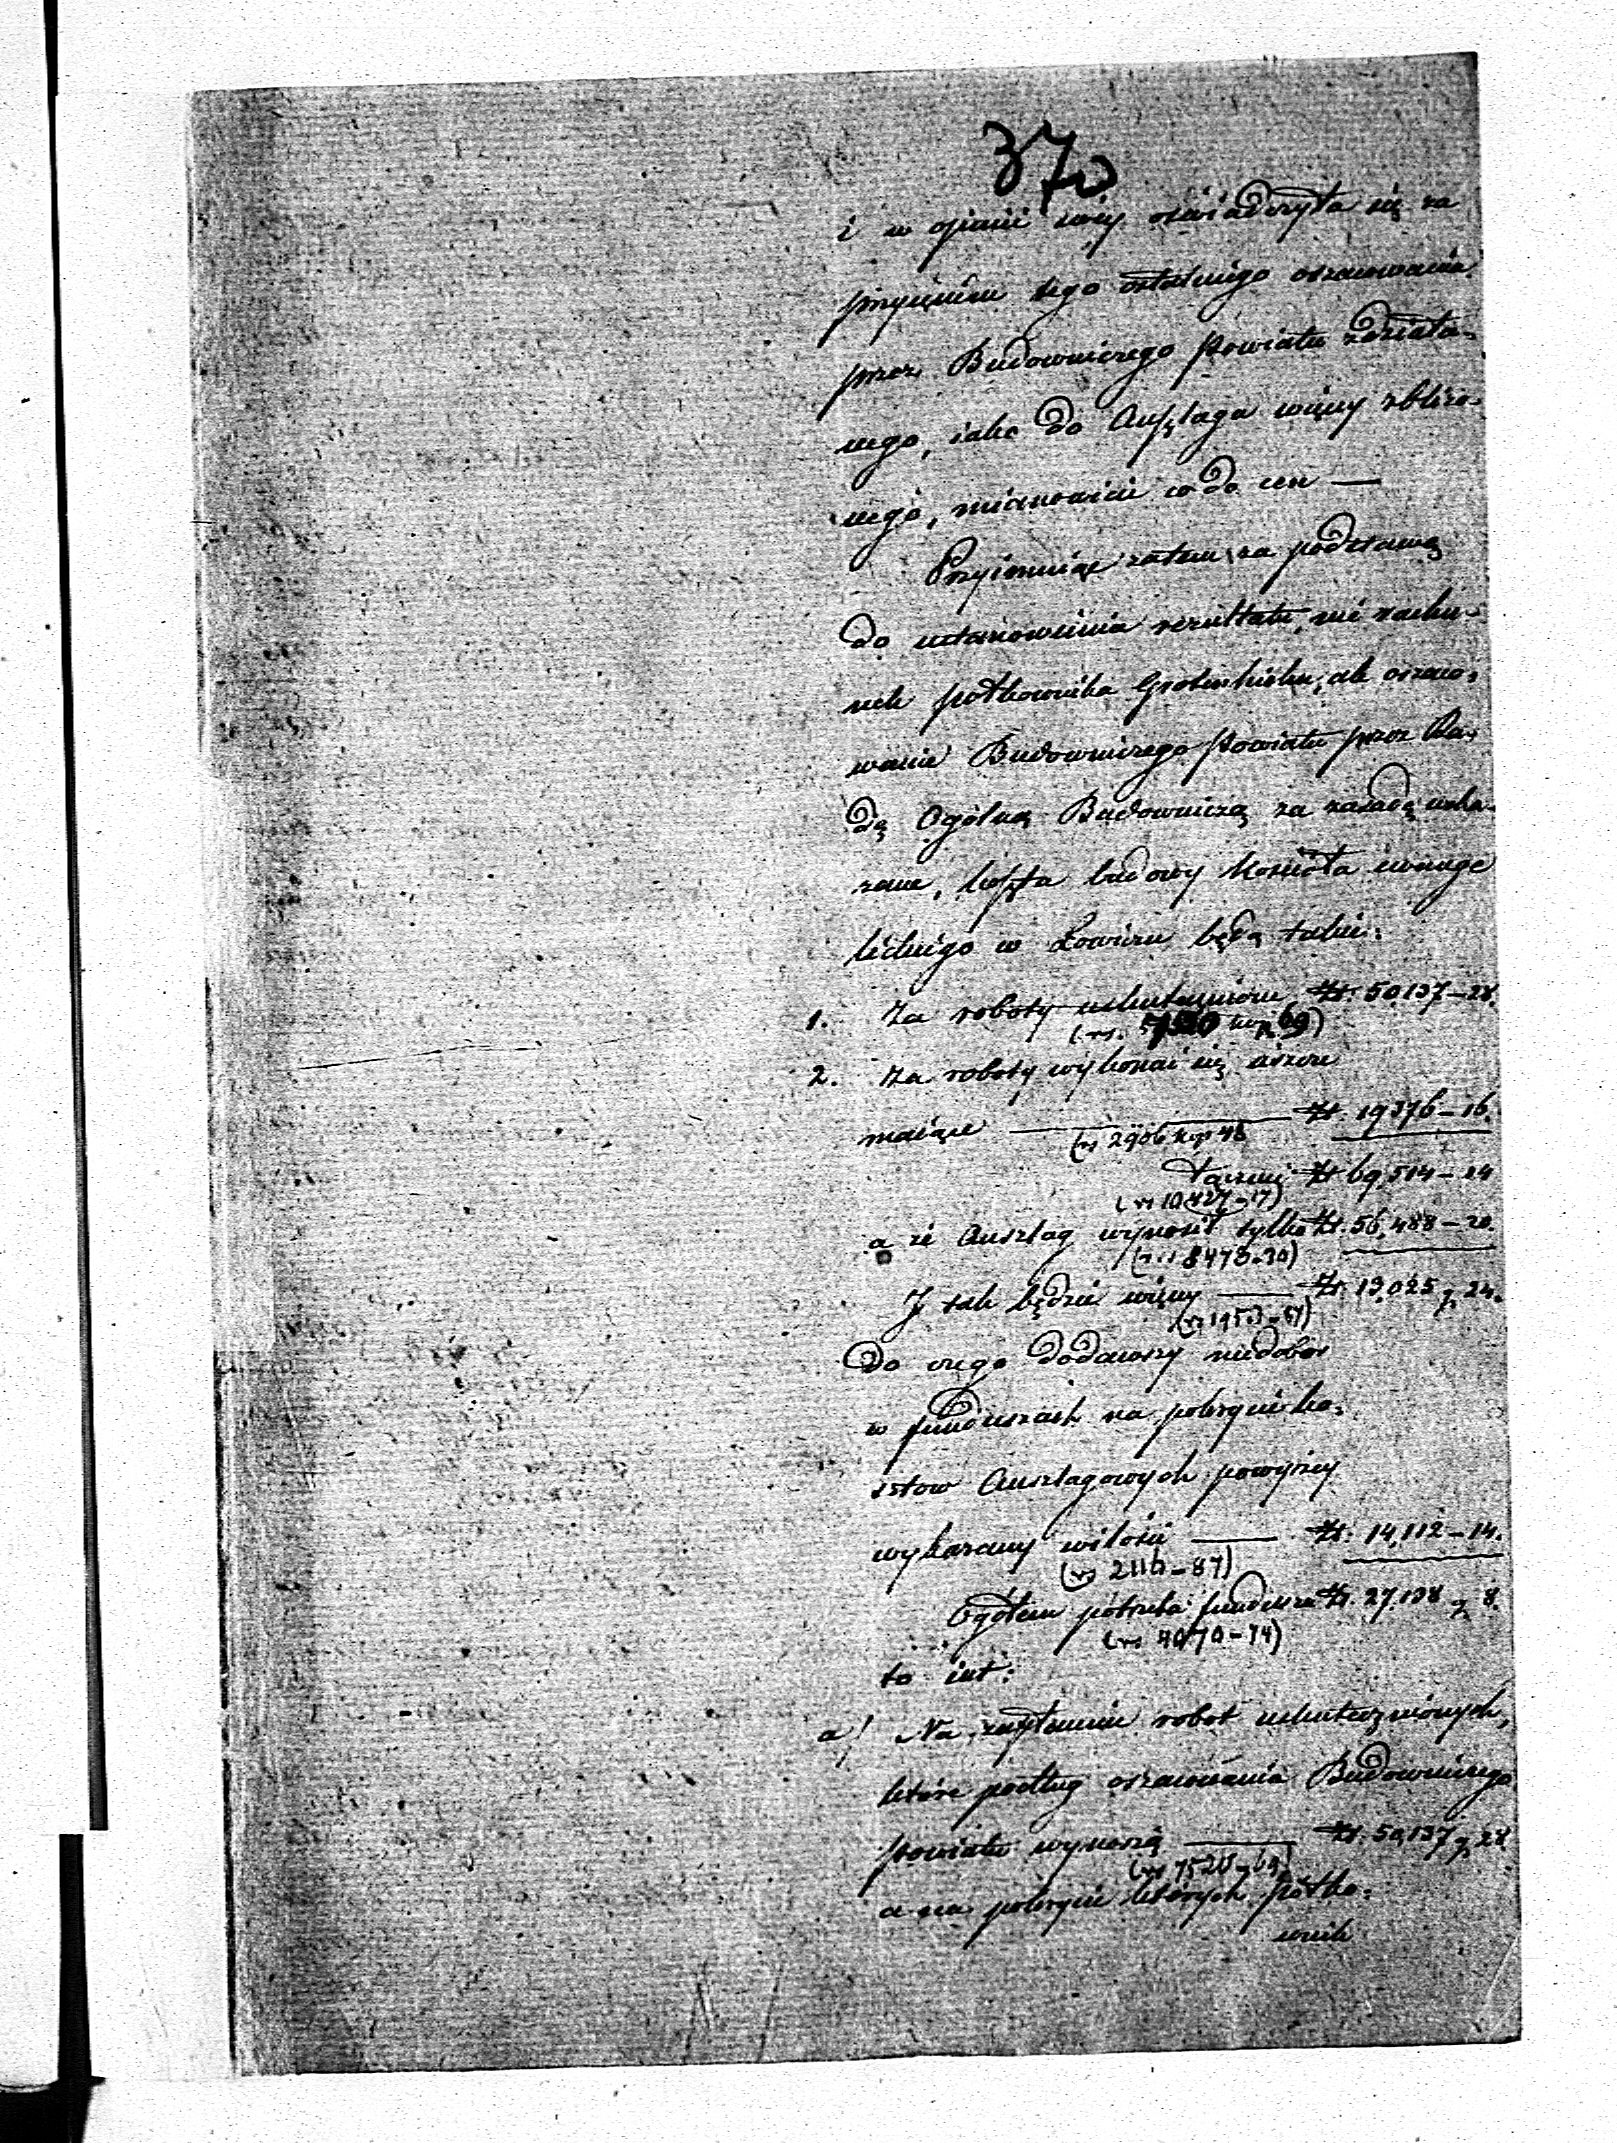 37v
i w opinii swéy oświadczyła się za
przyięciem tego ostatniego oszacowania
przez Budowniczego Powiatu zdziała-
nego, iako do Anszlaga więcéy zbliżo-
nego, mianowicie co do cen —
Przyiąwszy zatem za podstawę
do ustanowienia rezultatu, nie rachu-
nek półkownika, ale oszaco-
wanie Budowniczego Powiatu przez Ra-
dę Ogólną Budowniczą za zasadę wska-
zane, koszta budowy kościoła ewange
lickiego w Łowiczu będą takie:
1. Za roboty uskutecznione Zł. 50137 – 28
(rs. 7520 kop 69)
2. Za roboty wykonać się ieszcze
maiące — Zł. 19376 – 16.
(rs 2906 kop 48
Łącznie Zł 69,514 – 14
(rs 10427 – 17)
a że Anszlag wynosił tylko Zł. 56,488 – 20.
(rs 8473 – 30)
I tak będzie więcéy — Zł. 13,025 g. 24.
(rs 1953 – 87)
Do czego dodawszy niedobór
w funduszach na pokrycie ko-
sztow Anszlagowych powyżey
wykazany w ilości — Zł. 14,112 – 14.
(rs 2116 – 87)
Ogółem potrzeba funduszu Zł. 27,138 g 8.
(rs 4070 – 74)
to iest:
a/ Na zapłacenie robot uskutecznionych,
które podług oszacowania Budowniczego
Powiatu wynoszą — Zł. 50,137 g 28.
(rs 7520 – 69)
a na pokrycie których półko-
wnik